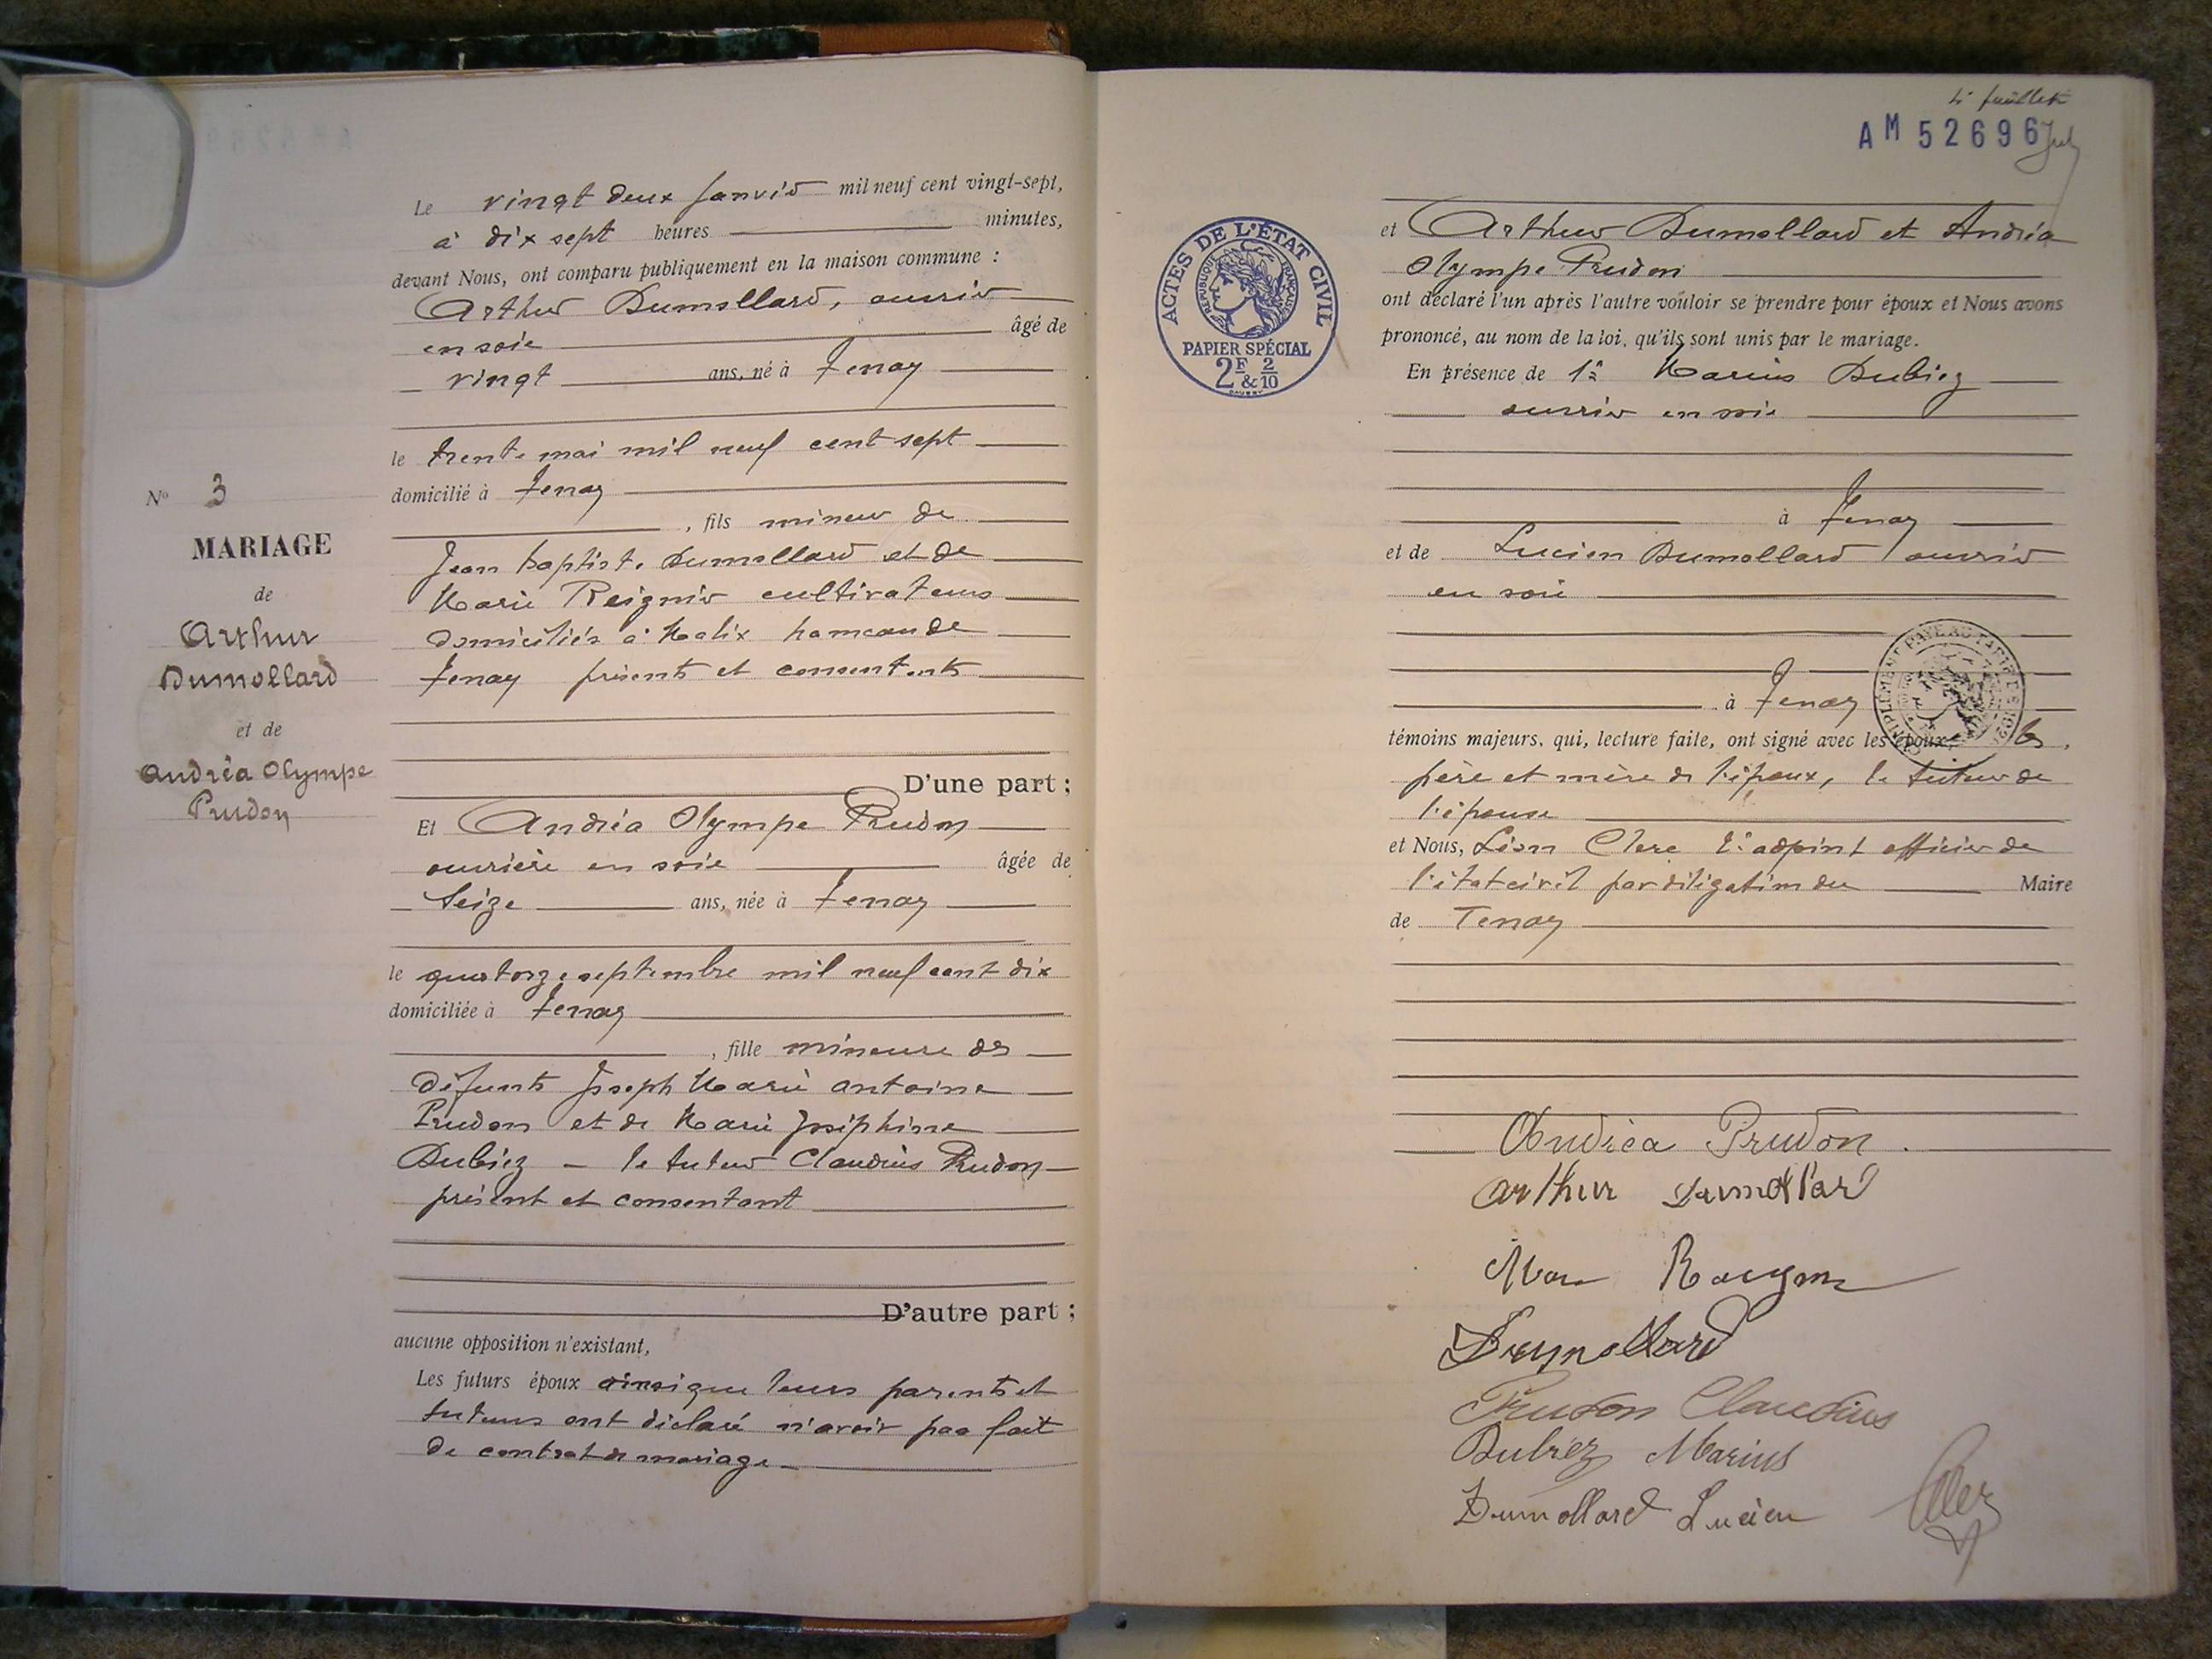 Le vingt deux Janvier mil neuf cent vingt-sept,
à dix sept heures minutes,
devant Nous, ont comparu publiquement en la maison commune :
Arthur Dumollard, ouvrier
en soie âgé de
vingt ans, né à Tenay
le trente mai mil neuf cent sept
domicilié à Tenay
, fils mineur de
Jean Baptiste Dumollard et de
Marie Reignier cultivateurs
domiciliés à Malix hameau de
Tenay présents et consentants
D'une part ;
Et Andréa Olympe Prudon
ouvrière en soie âgée de
Seize ans, née à Tenay
le quatorze septembre mil neuf cent dix
domiciliée à Tenay
, fille mineure des
défunts Joseph Marie Antoine
Prudon et de Marie Joséphine
Dubiez – le tuteur Claudius Prudon
présent et consentant
D'autre part ;
aucune opposition n'existant,
Les futurs époux ainsi que leurs parents et
tuteurs ont déclaré n'avoir pas fait
de contrat de mariage
No 3
MARIAGE
de
Arthur
Dumollard
et de
Andréa Olympe
Prudon
feuillet
AM 52696
ACTES DE L'ÉTAT CIVIL
RÉPUBLIQUE FRANÇAISE
PAPIER SPÉCIAL
2F & 2/10
et Arthur Dumollard et Andréa
Olympe Prudon
ont déclaré l'un après l'autre vouloir se prendre pour époux et Nous avons
prononcé, au nom de la loi, qu'ils sont unis par le mariage.
En présence de 1º Marius Dubiez
ouvrier en soie
à Tenay
et de Lucien Dumollard ouvrier
en soie
à Tenay
témoins majeurs, qui, lecture faite, ont signé avec les époux, les
père et mère de l'époux, le tuteur de
l'épouse
et Nous, Léon Clerc adjoint officier de
l'état civil par délégation du Maire
de Tenay
Andréa Prudon.
Arthur Dumollard
Dumollard
Prudon Claudius
Dubiez Marius
Dumollard Lucien